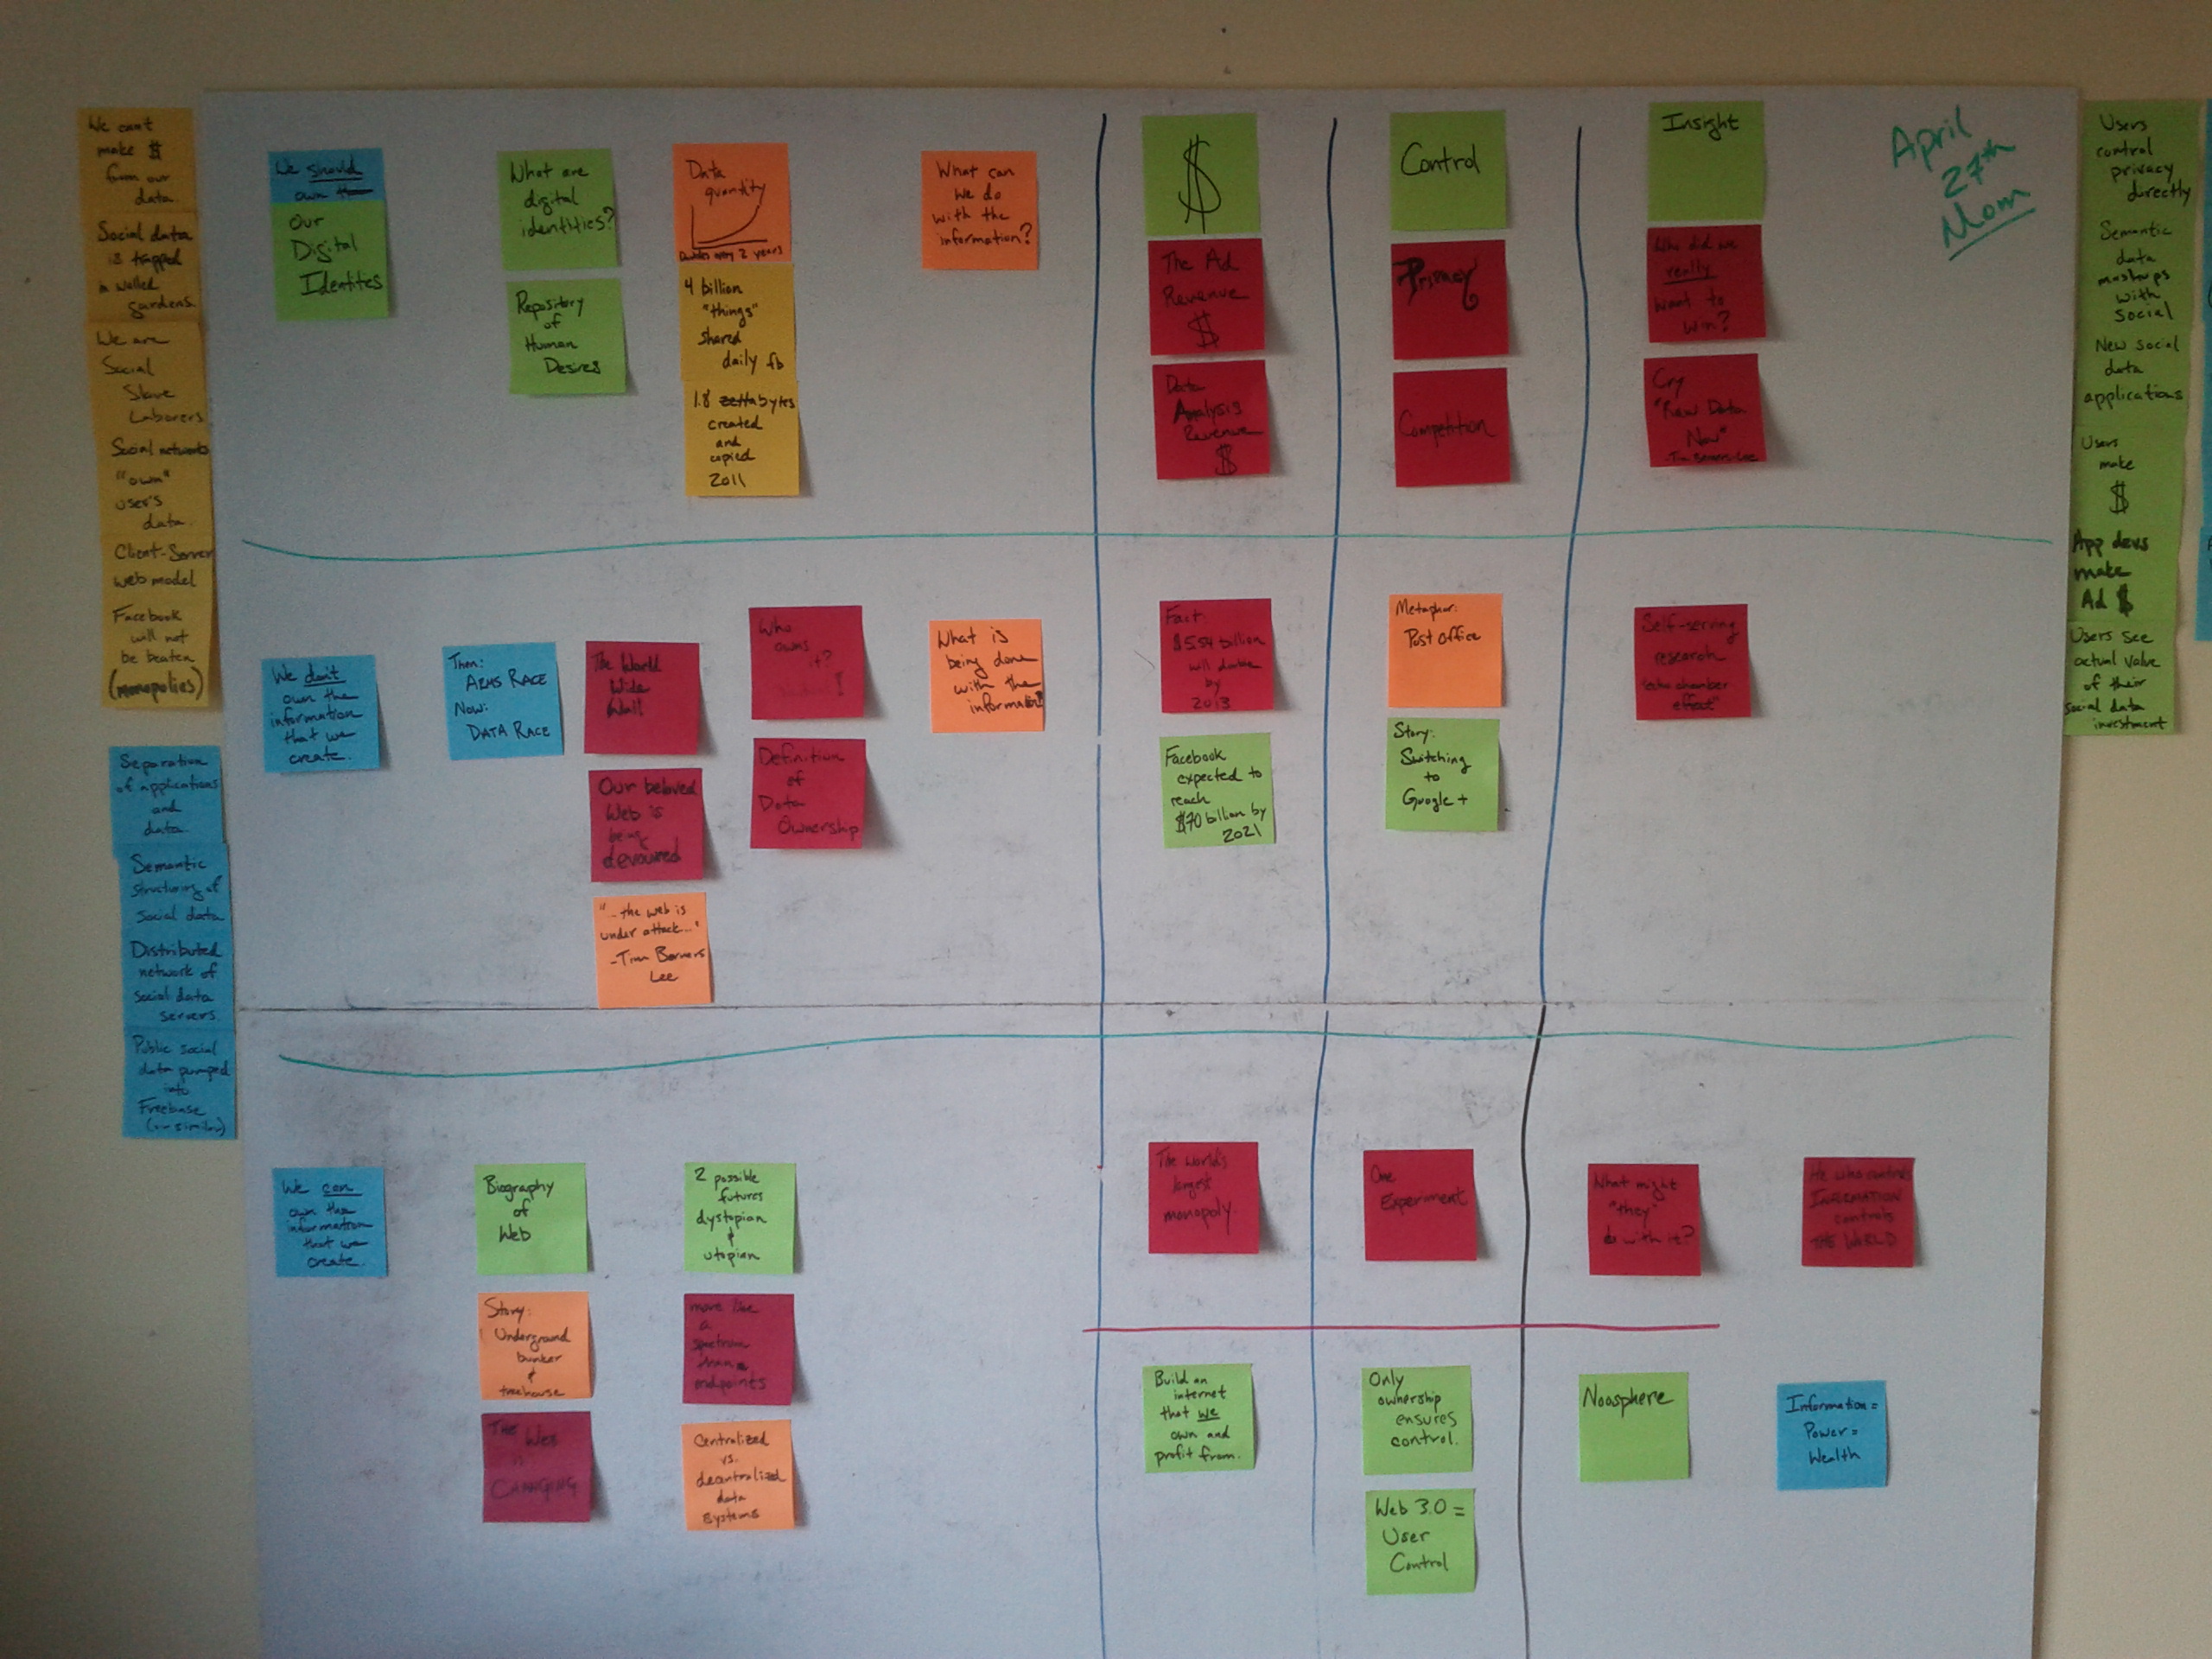 We can't
make $
from our
data.
Social data
is trapped
in walled
gardens.
We are
Social
Slave
Laborers
Social networks
"own"
user's
data.
Client-Server
web model
Facebook
will not
be beaten
(monopolies)
Separation
of applications
and
data.
Semantic
structuring of
social data
Distributed
network of
social data
servers.
Public social
data pumped
into
Freebase
(or similar)
We should
own the
Our
Digital
Identities
What are
digital
identities?
Repository
of
Human
Desires
Data
quantity
Doubles every 2 years
4 billion
"things"
shared
daily fb
1.8 zettabytes
created
and
copied
2011
What can
we do
with the
information?
$
The Ad
Revenue
$
Data
Analysis
Revenue
$
Control
Privacy
Competition
Insight
Who did we
really
want to
win?
Cry
"Raw Data
Now"
-Tim Berners-Lee
April
27th
Mom
We don't
own the
information
that we
create.
Then:
ARMS RACE
Now:
DATA RACE
The World
Wide
Wall
Our beloved
Web is
being
devoured
"...the web is
under attack..."
-Tim Berners
Lee
Who
owns
it?
Definition
of
Data
Ownership
What is
being done
with the
information?
Fact:
$5.54 billion
will double
by
2013
Facebook
expected to
reach
$70 billion by
2021
Metaphor:
Post Office
Story:
Switching
to
Google +
Self-serving
research
"echo chamber
effect"
We can
own the
information
that we
create.
Biography
of
Web
Story:
Underground
bunker
&
treehouse
The Web
is
CHANGING
2 possible
futures
dystopian
&
utopian
more like
a
spectrum
than
endpoints
Centralized
vs.
decentralized
data
systems
The world's
largest
monopoly.
One
Experiment
What might
"they"
do with it?
He who controls
INFORMATION
controls
THE WORLD
Build an
internet
that we
own and
profit from.
Only
ownership
ensures
control.
Web 3.0 =
User
Control
Noosphere
Information =
Power =
Wealth
Users
control
privacy
directly
Semantic
data
mashups
with
social
New social
data
applications
Users
make
$
App devs
make
Ad $
Users see
actual value
of their
social data
investment